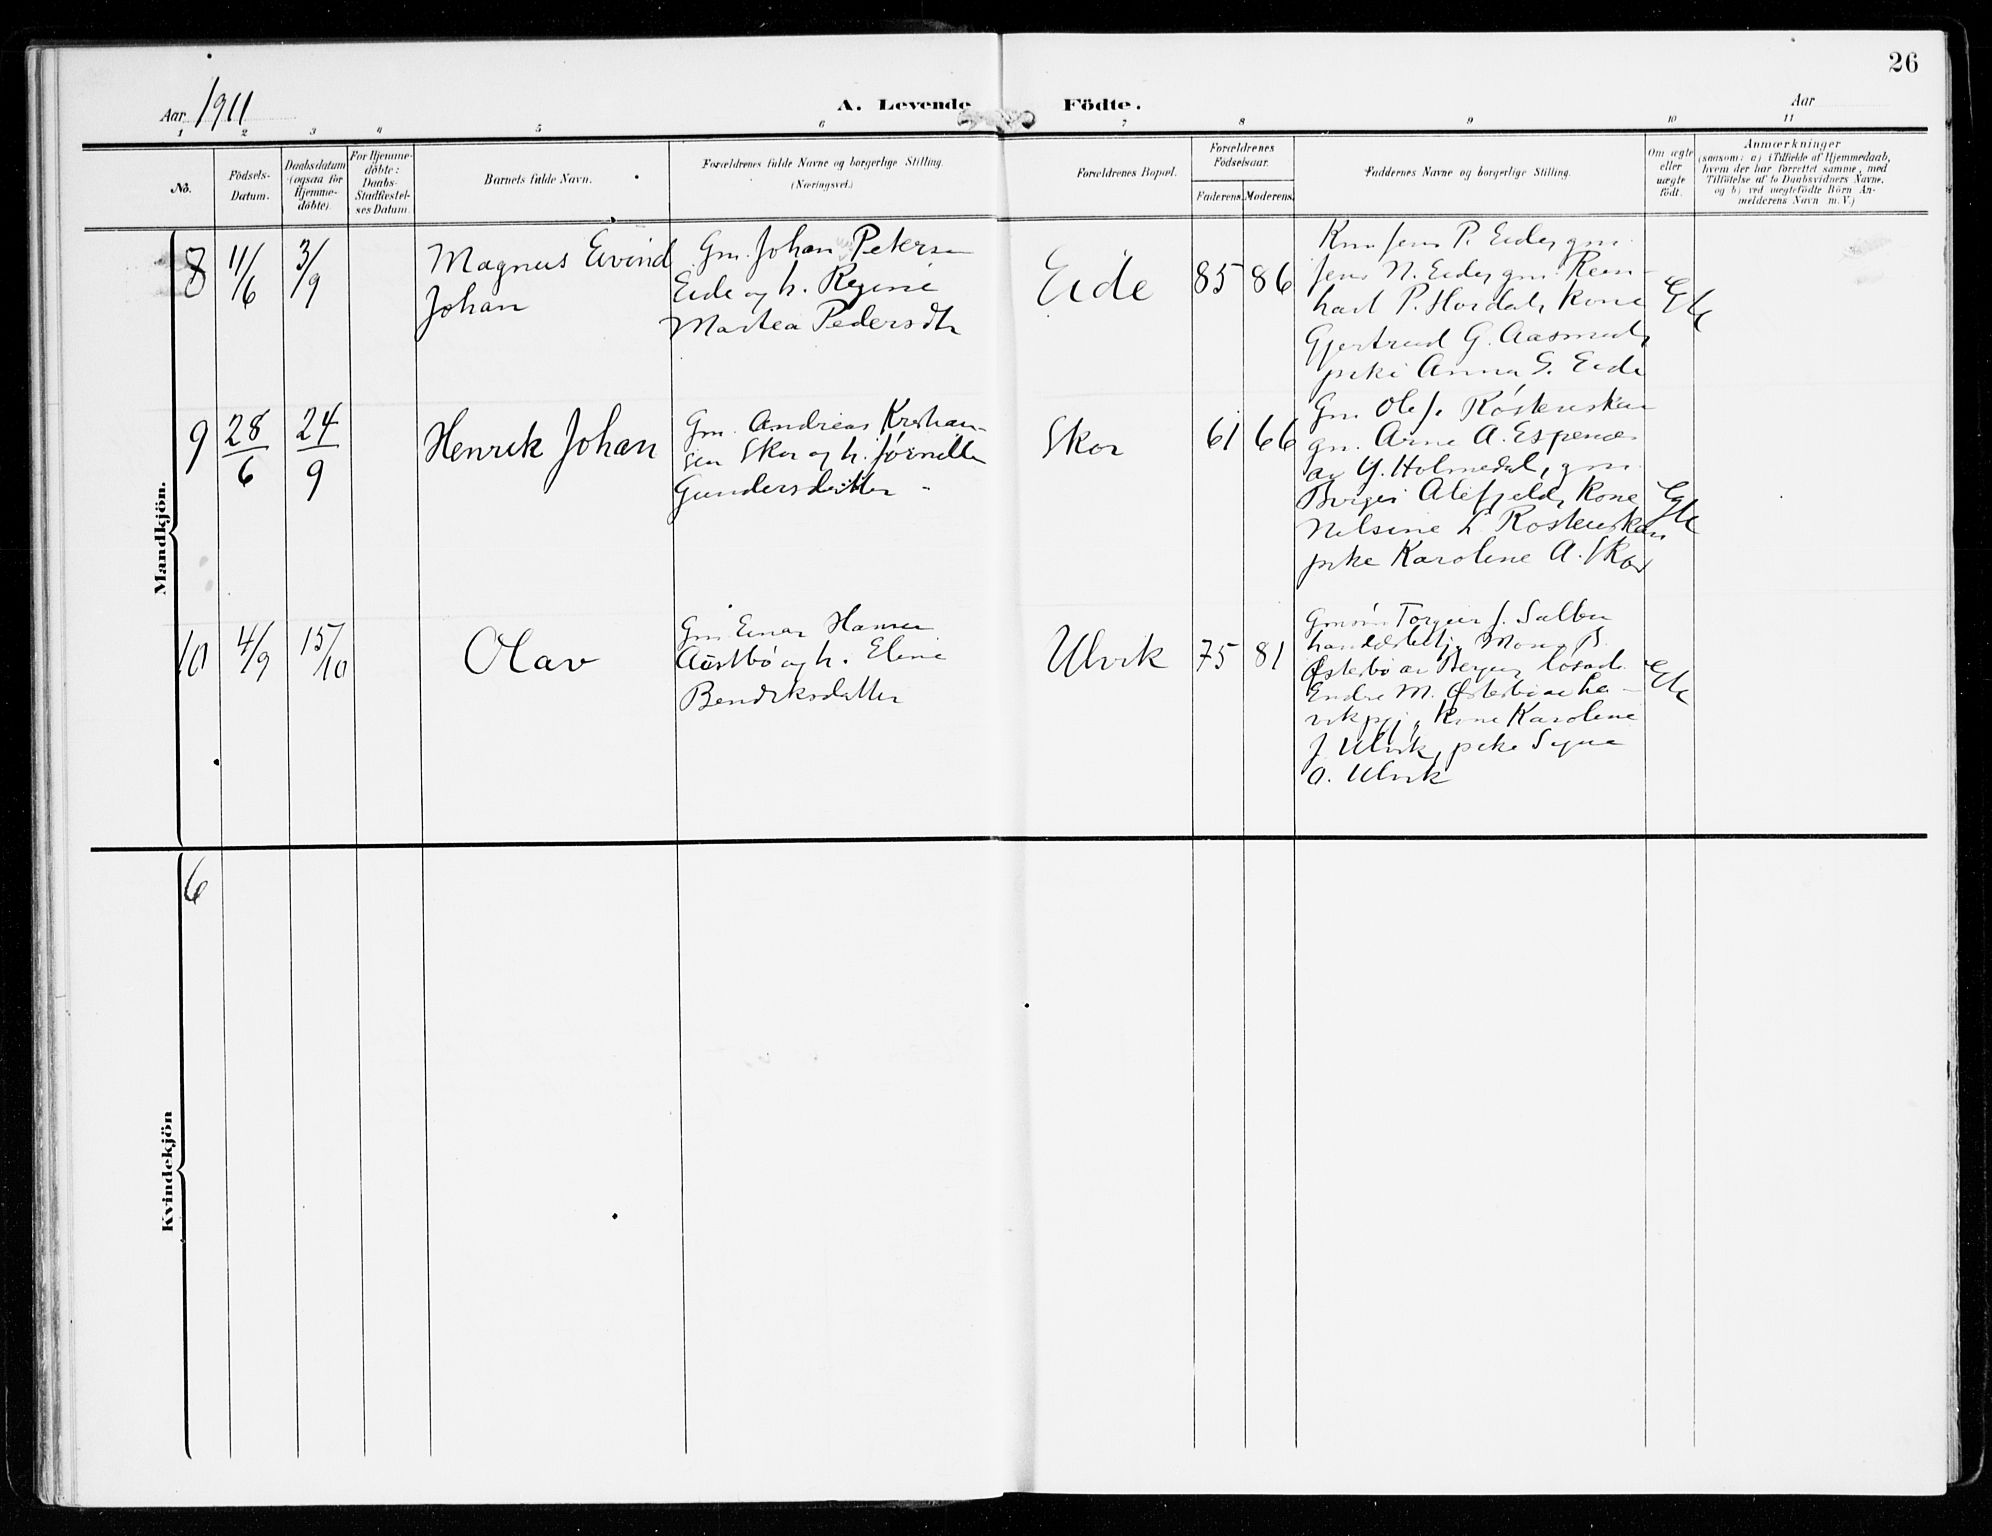 26
Aar 1911
A. Levende Födte.
Aar
1 2 3 4 5 6 7 8 9 10 11
No.
Födsels-
Datum.
Daabsdatum
(ogsaa for
Hjemme-
döbte).
For Hjemme-
döbte:
Daabs-
Stadfæstel-
ses Datum.
Barnets fulde Navn.
Forældrenes fulde Navne og borgerlige Stilling.
(Næringsvei.)
Forældrenes Bopæl.
Forældrenes
Födselsaar.
Faderens. Moderens.
Faddernes Navne og borgerlige Stilling.
Om ægte
eller
uægte
födt.
Anmærkninger
(saasom: a) i Tilfælde af Hjemmedaab,
hvem der har forrettet samme, med
Tilföielse af to Daabsvidners Navne,
og b) ved uægtefödte Börn An-
melderens Navn m. V.)
Mandkjön.
8
11/6
3/9
Magnus Eivind
Johan
Gm. Johan Petersen
Eide og h. Regine
Martea Pedersdtr
Eide
85 86
Km Jens P. Eide, gm.
Jens N. Eide, gm. Rein-
hart P. Hordal, Kone
Gjertrud G. Aasmul,
pike Anna G. Eide
Egte
9
28/6
24/9
Henrik Johan
Gm. Andreas Kristian-
sen Skor og h. Jörnelle
Gundersdatter -
Skor
61 66
Gm Ole J. Röstenskar
gm. Arne A. Espenes
av Y. Holmedal, gm.
Birger Alefjeld, Kone
Nilsine L. Röstenskar,
pike Karoline A. Skor
Egte
10
4/9
15/10
Olav
Gm. Einar Hansen
Austbö og h. Eline
Bendiksdatter
Ulvik
75 81
Gmsön Torgeir J. Salbu
handelsbetj. Mons B.
Østerbö av Bergen, losold.
Endre M. Østerbö av La-
vik pgj., Kone Karoline
J. Ulvik, pike Signe
O. Ulvik
Egte
Kvindekjön
6